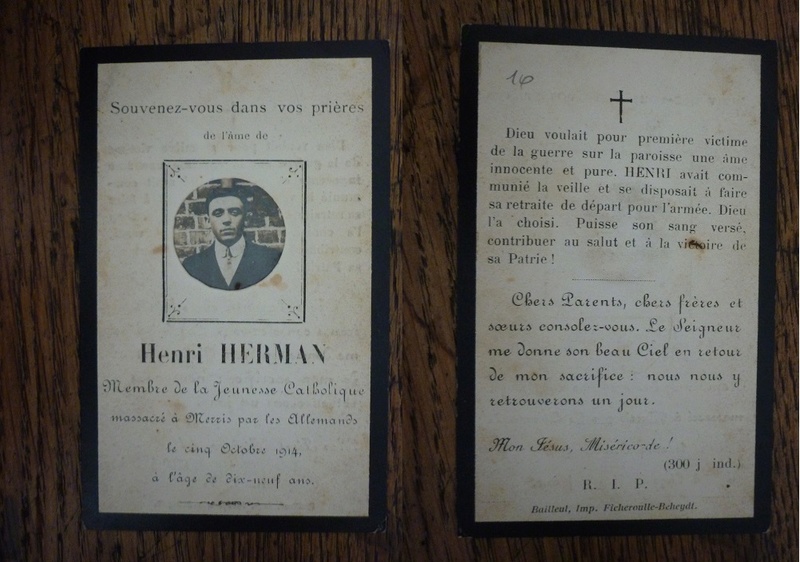 Souvenez-vous dans vos prières
de l'âme de
Henri HERMAN
Membre de la Jeunesse Catholique
massacré à Merris par les Allemands
le cinq Octobre 1914,
à l'âge de dix-neuf ans.
16
Dieu voulait pour première victime
de la guerre sur la paroisse une âme
innocente et pure. HENRI avait com-
munié la veille et se disposait à faire
sa retraite de départ pour l'armée. Dieu
l'a choisi. Puisse son sang versé,
contribuer au salut et à la victoire de
sa Patrie !
Chers Parents, chers frères et
sœurs consolez-vous. Le Seigneur
me donne son beau Ciel en retour
de mon sacrifice : nous nous y
retrouverons un jour.
Mon Jésus, Miséricorde !
(300 j ind.)
R. I. P.
Bailleul, Imp. Ficheroulle-Beheydt.